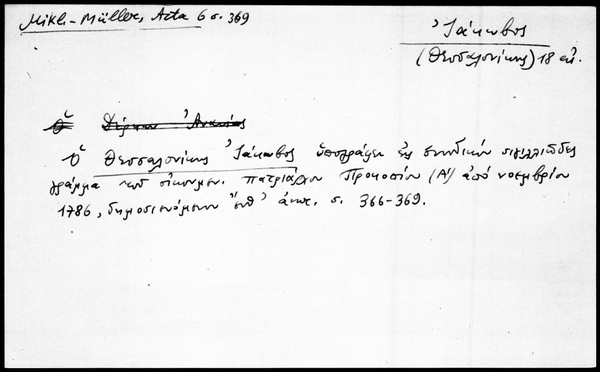 Mikl-Müller, Acta 6 σ. 369
Ἰάκωβος
(Θεσσαλονίκης) 18 αἰ.
Ὁ
Ὁ Θεσσαλονίκης Ἰάκωβος ὑπογράφει εἰς συνοδικόν σιγιλλιῶδες
γράμμα τοῦ οἰκουμεν. πατριάρχου Προκοπίου (Α') ἀπό νοεμβρίου
1786, δημοσιευόμενον ἔνθ' ἀνωτ. σ. 366-369.